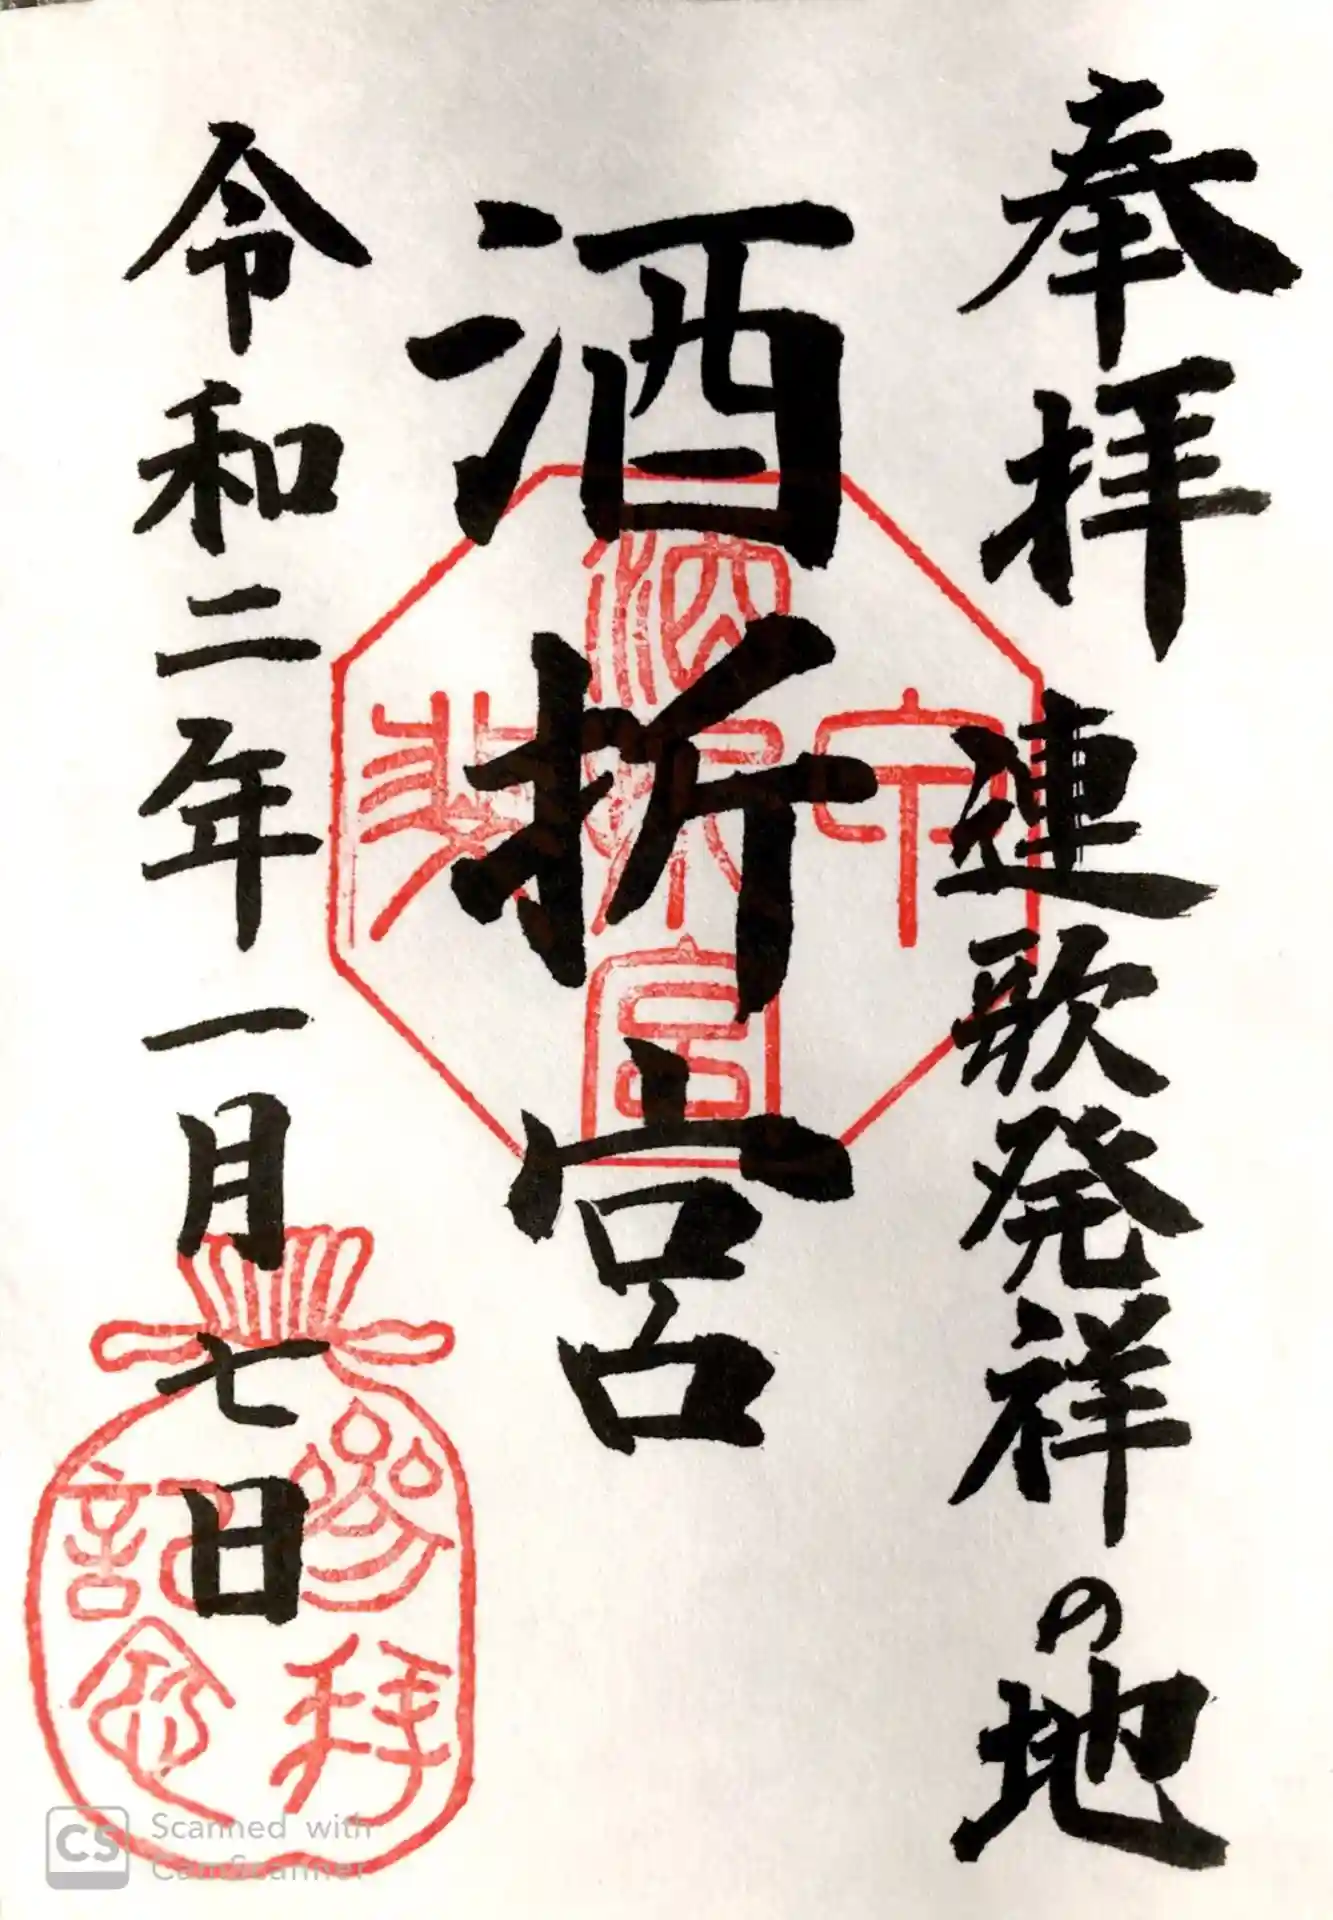 奉拝
連歌発祥の地
酒折宮
令和二年一月七日
酒折宮
參拜
記念
CS Scanned with
CamScanner